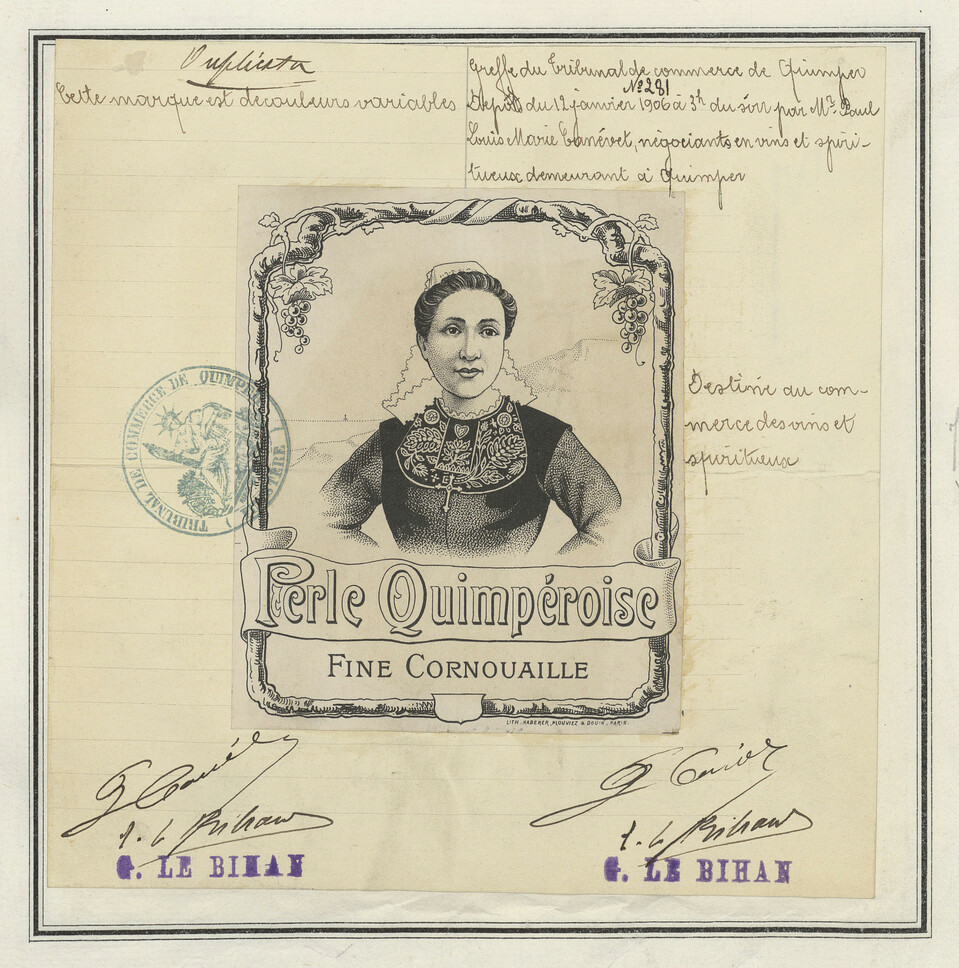 Duplicata
Cette marque est de couleurs variables
Greffe du Tribunal de commerce de Quimper
No 281
Dépôt du 12 janvier 1906 à 3h du soir par Mr. Paul
Louis Marie Canévet, négociants en vins et spiri-
tueux demeurant à Quimper
Destiné au com-
merce des vins et
spiritueux
TRIBUNAL DE COMMERCE DE QUIMPER
Perle Quimpéroise
FINE CORNOUAILLE
LITH. HABERER, PLOUVIEZ & DOUIN, PARIS.
G. LE BIHAN
G. LE BIHAN